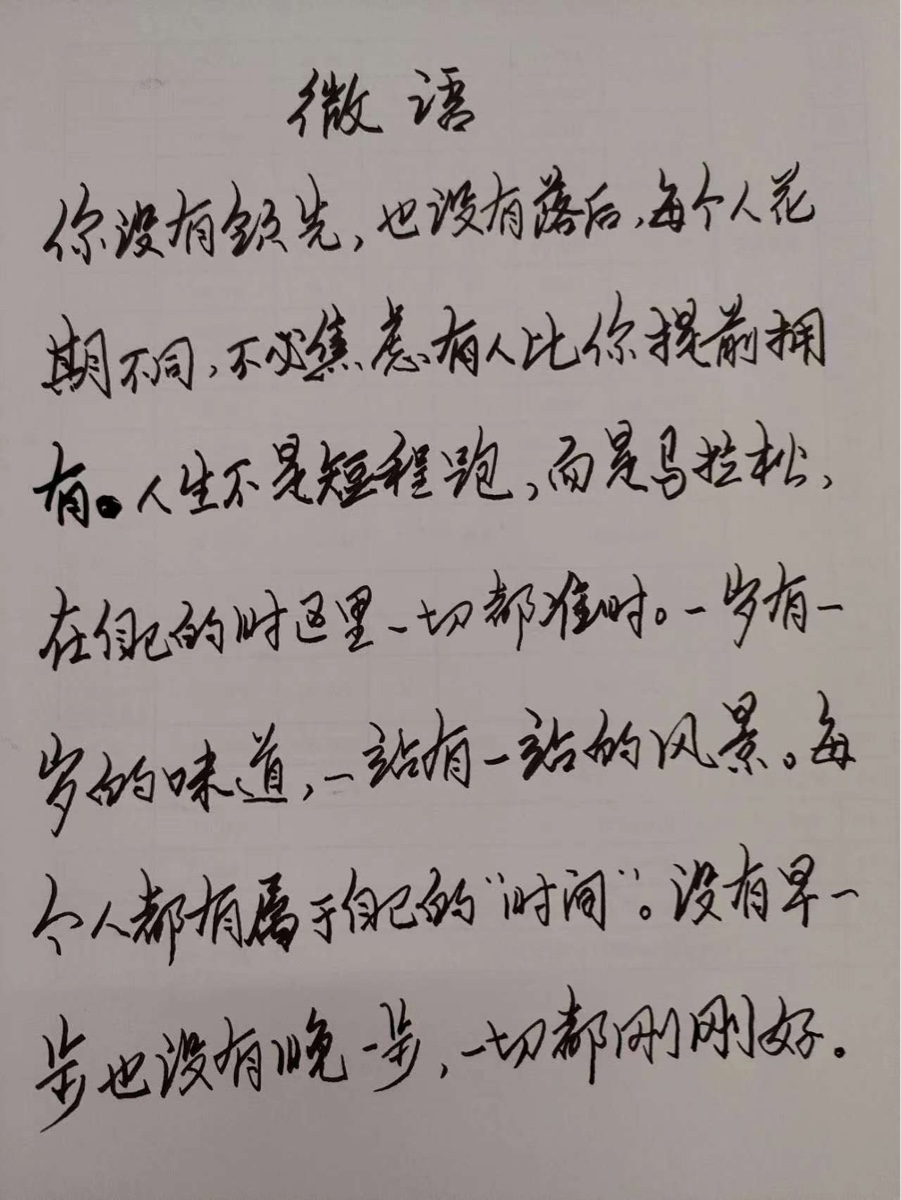 微语
你没有领先,也没有落后,每个人花
期不同,不必焦虑有人比你提前拥
有。人生不是短程跑,而是马拉松,
在自己的时区里一切都准时。一岁有一
岁的味道,一站有一站的风景。每
个人都有属于自己的“时间”。没有早一
步也没有晚一步,一切都刚刚好。